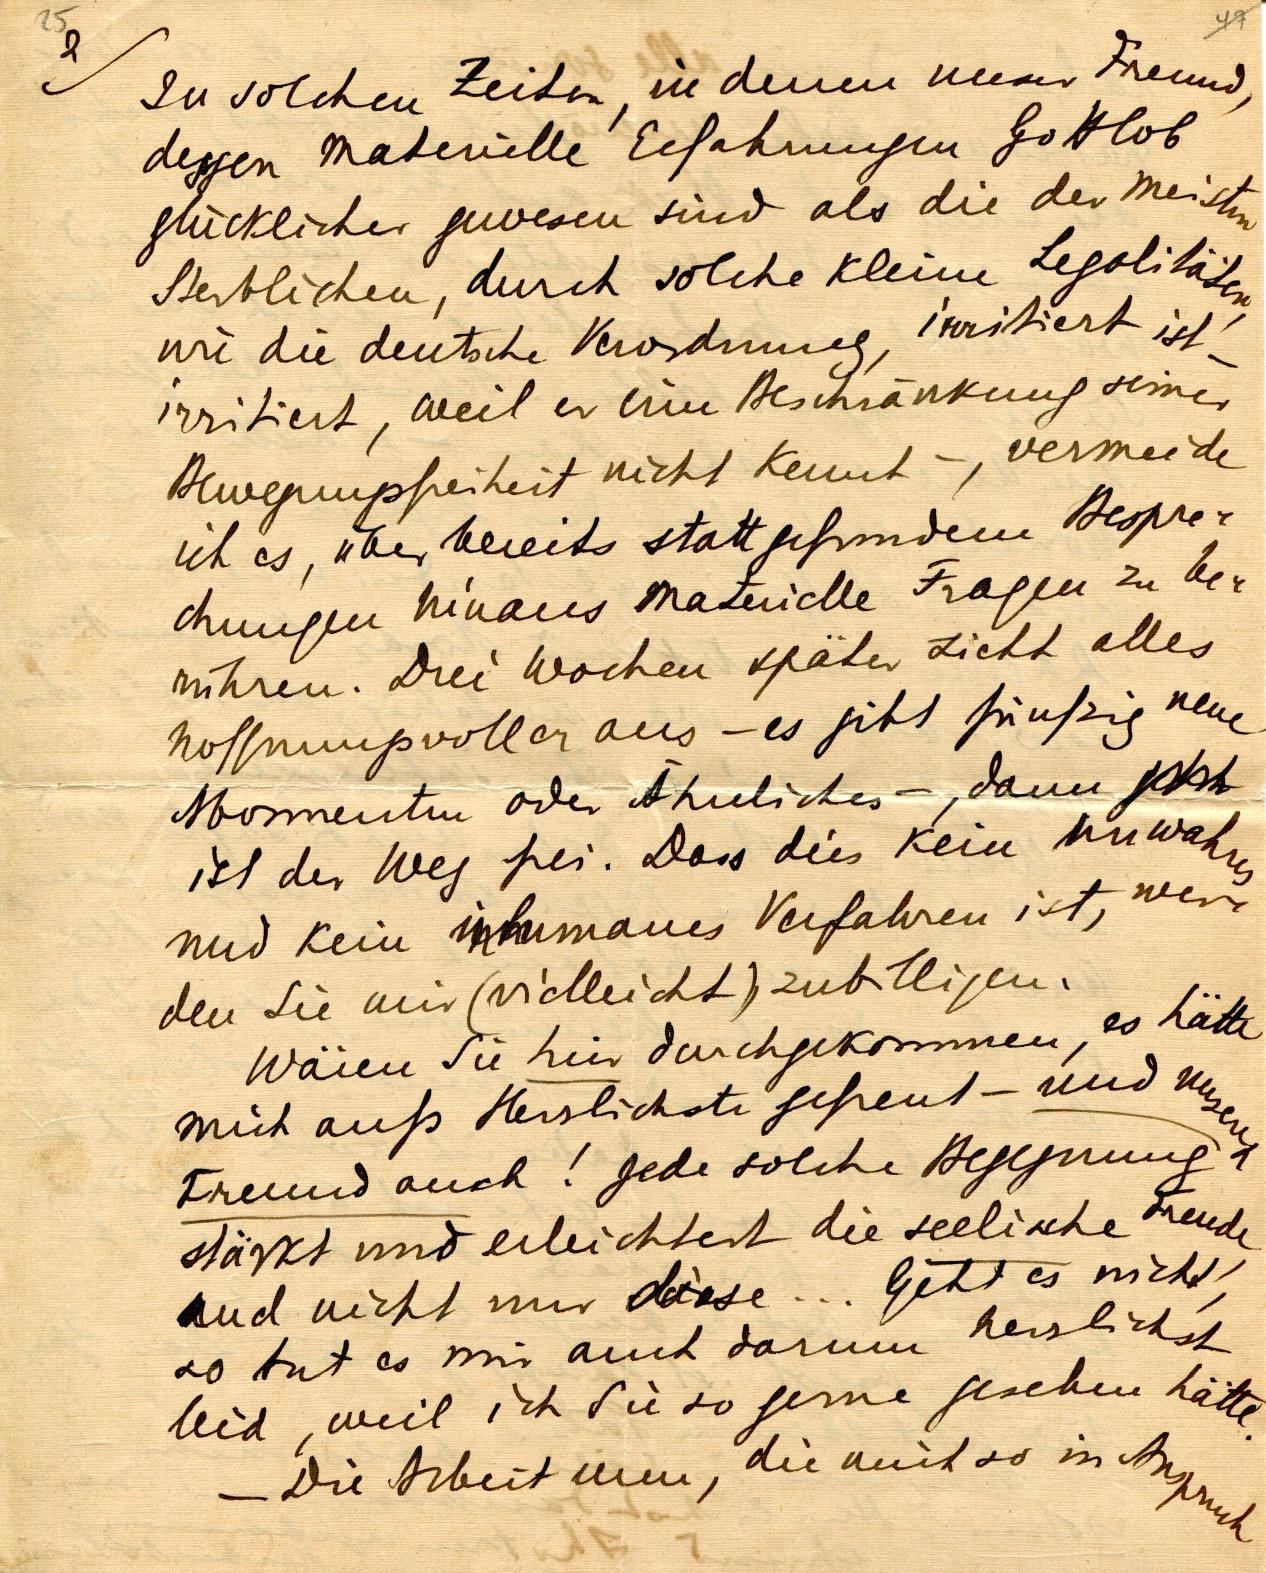 25 49
2
In solchen Zeiten, in denen unser Freund,
dessen materielle Erfahrungen Gottlob
glücklicher gewesen sind als die der meisten
Sterblichen, durch solche kleine Legalitäten,
wie die deutsche Verordnung, irritiert ist –
irritiert, weil er eine Beschränkung seiner
Bewegungsfreiheit nicht kennt –, vermeide
ich es, über bereits stattgefundene Bespre-
chungen hinaus materielle Fragen zu be-
rühren. Drei Wochen später sieht alles
hoffnungsvoller aus – es gibt fünfzig neue
Abonnenten oder Ähnliches –, dann
ist der Weg frei. Dass dies kein unwahres
und kein inhumanes Verfahren ist, wer-
den Sie mir (vielleicht) zubilligen.
Wären Sie hier durchgekommen, es hätte
mich aufs Herzlichste gefreut – und unseren
Freund auch! Jede solche Begegnung
stärkt und erleichtert die seelische Freude
und nicht nur diese ... Geht es nicht,
so tut es mir auch darum herzlichst
leid, weil ich Sie so gerne gesehen hätte.
– Die Arbeit nun, die mich so in Anspruch